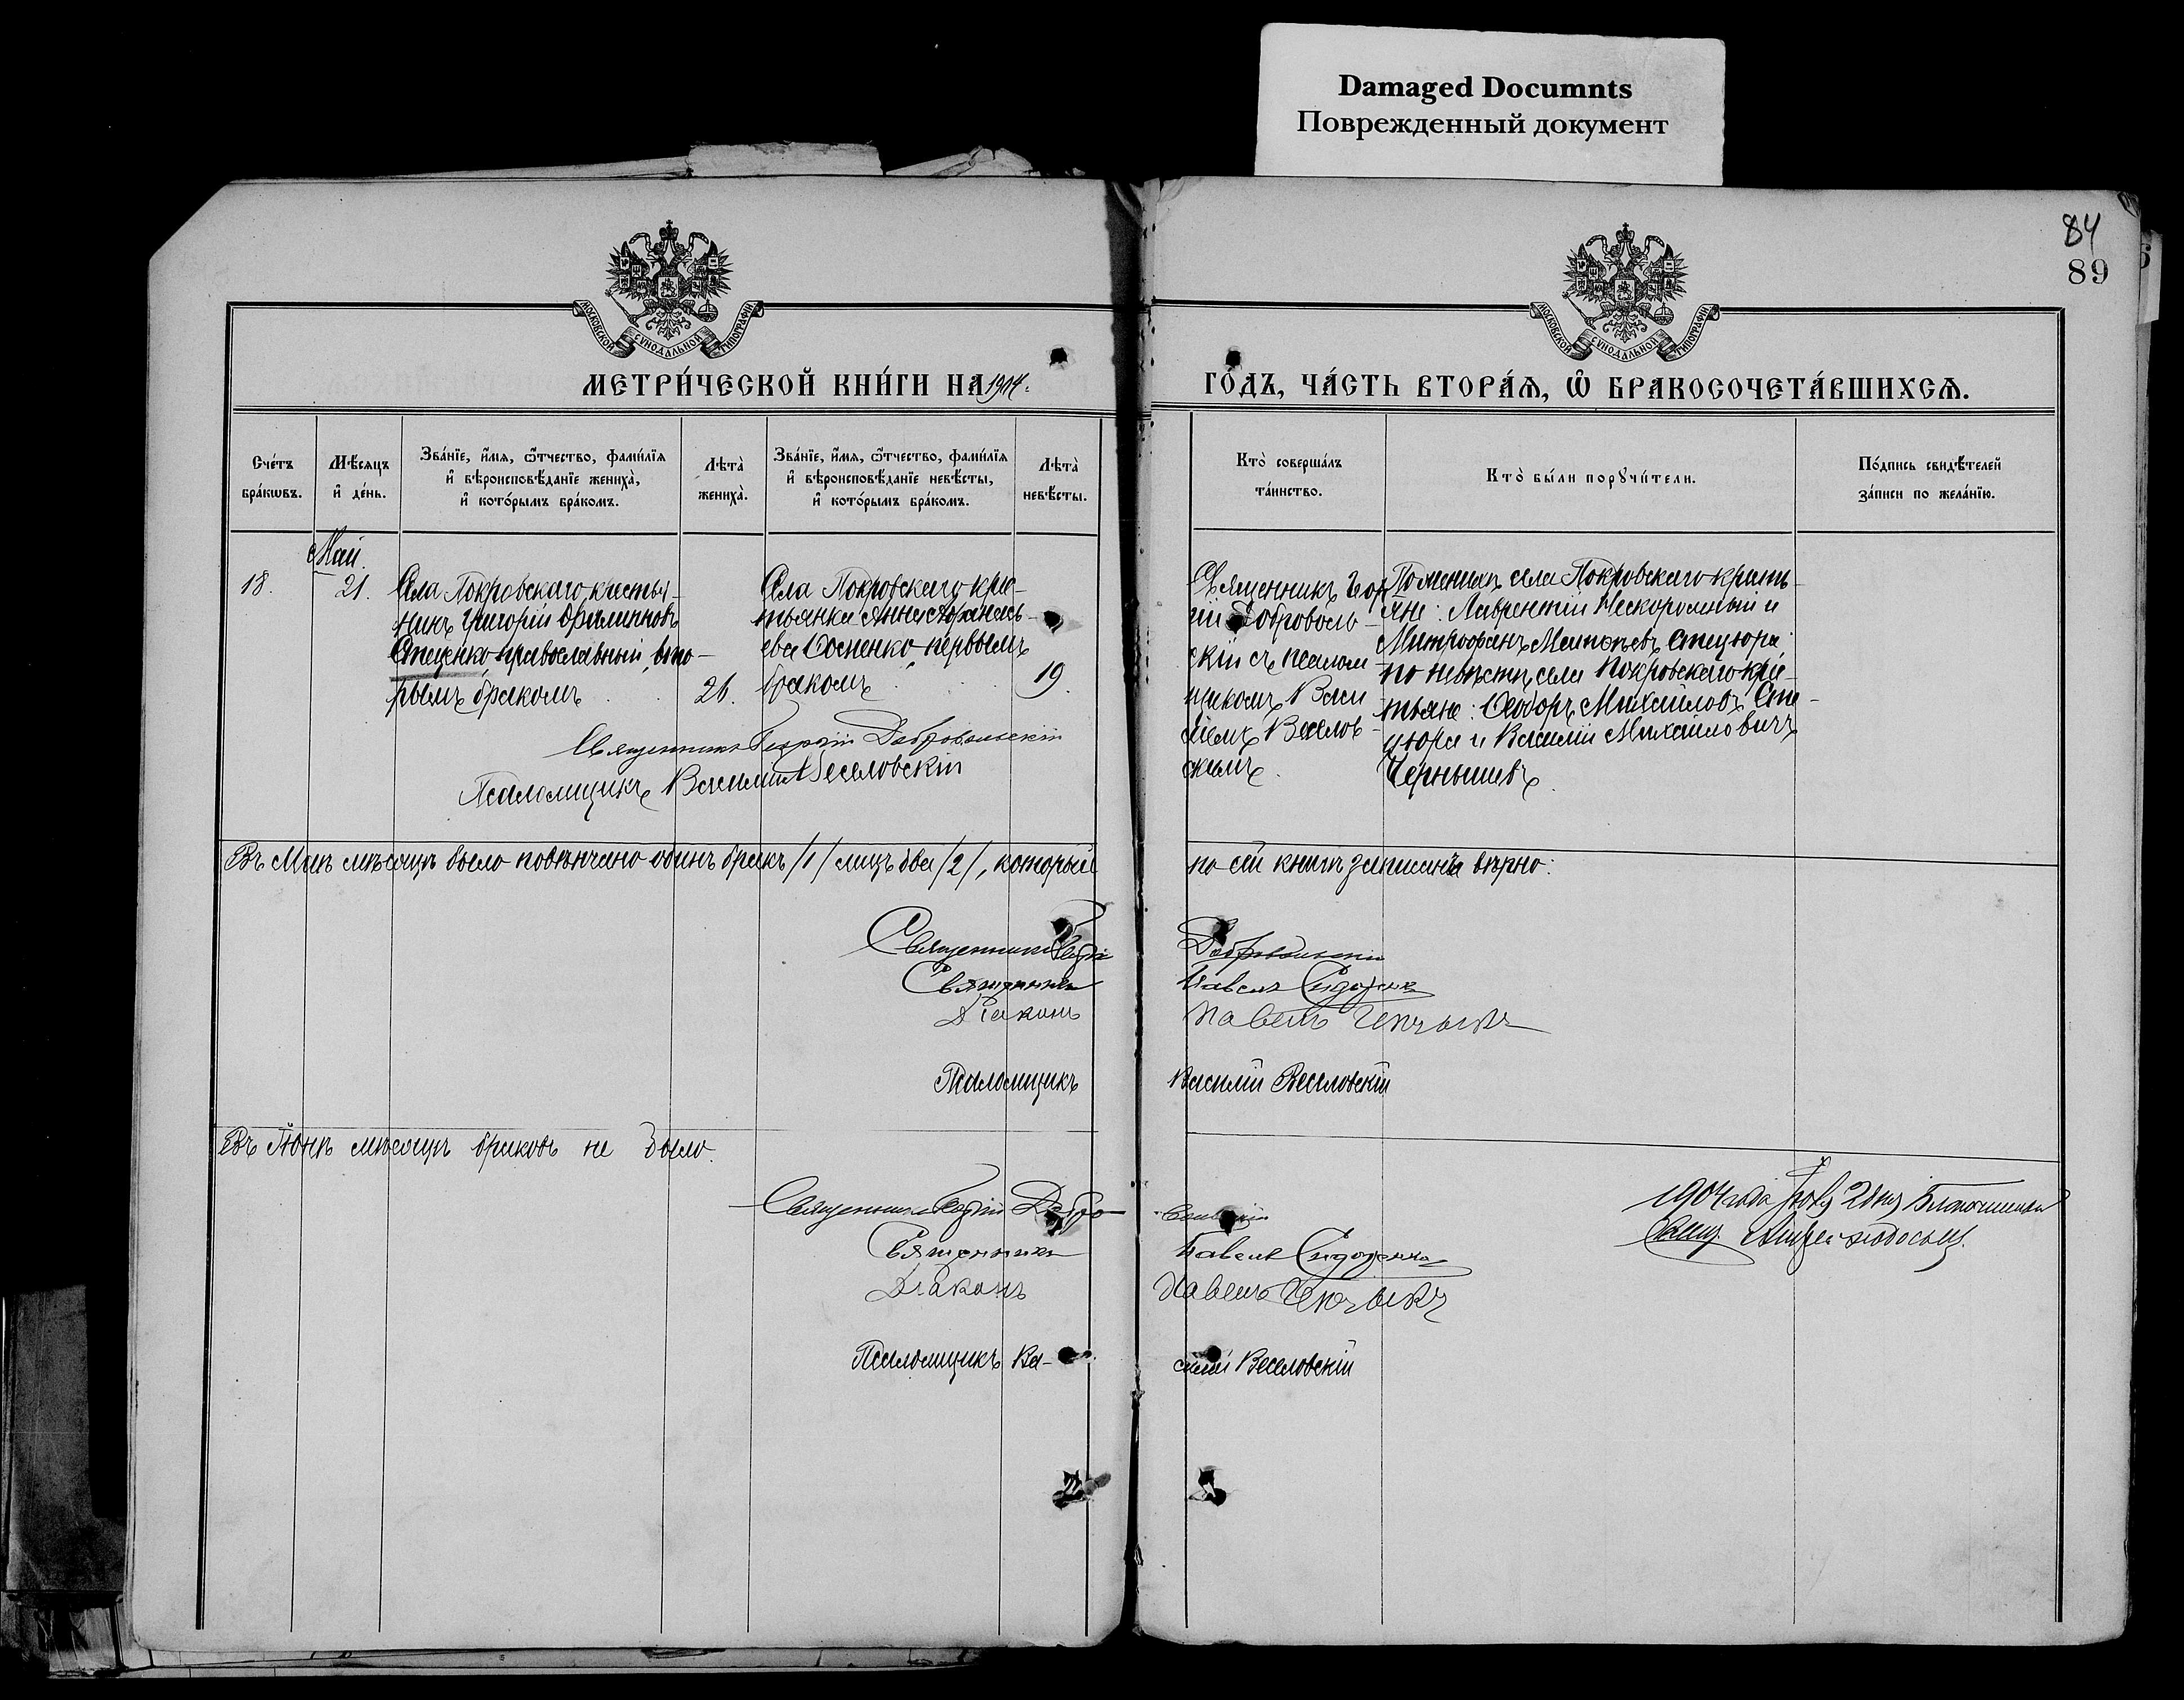 Damaged Documnts
Поврежденный документ
84
89
МОСКОВСКОЙ СѴНОДАЛЬНОЙ ТИПОГРАФІИ
МОСКОВСКОЙ СѴНОДАЛЬНОЙ ТИПОГРАФІИ
МЕТРИ́ЧЕСКОЙ КНИ́ГИ НА 1904.
ГО́ДЪ, ЧА́СТЬ ВТОРА́Ѧ, Ѽ БРАКОСОЧЕТА́ВШИХСѦ.
Сче́тъ бра́кѡвъ.
Мѣ́сяцъ и҆ де́нь.
Зва́нїе, и҆́мя, ѻ҆́тчество, фами́лїя и҆ вѣроисповѣ́данїе жениха̀, и҆ кото́рымъ бра́комъ.
Лѣ̀та̀ жениха̀.
Зва́нїе, и҆́мя, ѻ҆́тчество, фами́лїя и҆ вѣроисповѣ́данїе невѣ́сты, и҆ кото́рымъ бра́комъ.
Лѣ̀та̀ невѣ́сты.
Кто̀ соверша́лъ та́инство.
Кто̀ бы́ли порꙋчи́тели.
По́дпись свидѣ́телей за́писи по жела́нїю.
Май.
18.
21.
Села Покровскаго, крестья-
нинъ Григорій Филипповъ
Стеценко, православный, вто-
рымъ бракомъ
26.
Села Покровскаго кре-
стьянка Анна Афанась-
ева Осипенко, первымъ
бракомъ
19.
Священникъ Геор
гій Доброволь-
скій съ псалом
щикомъ Васи
ліемъ Веселов-
скимъ.
По женихѣ села Покровскаго кресть-
яне: Лаврентій Нескоромный и
Митрофанъ Матвѣевъ Стецюра:
по невѣстѣ, села Покровскаго кре-
стьяне: Ѳеодоръ Михайловъ Сте-
цюра и Василій Михайловичъ
Чернышевъ.
Священникъ Георгій Добровольскій
Псаломщикъ Василій Веселовскій
Въ Маѣ мѣсяцѣ было повѣнчано одинъ бракъ /1/ лицъ два /2/, который
по сей книгѣ записанъ вѣрно:
Священникъ Георгій Добровольскій
Священникъ Павелъ Сидоренко
Діаконъ Павелъ
Псаломщикъ Василій Веселовскій
Въ Іюнѣ мѣсяцѣ браковъ не было.
Священникъ Георгій Добро-вольскій
Священникъ Павелъ Сидоренко
Діаконъ Павелъ
Псаломщикъ Ва-силій Веселовскій
1904 года